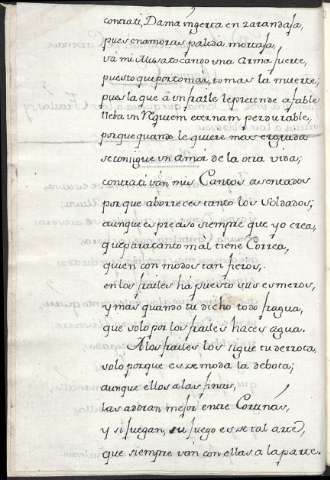 contra ti, Dama ingerta en zarandaja,
pues enamoras palida mortaja,
va mi Musa tocando una Arma fuerte,
puesto que por tomar, tomas la muerte;
pues la que à un fraile le pretende afable
lleva un Requiem eternam perdurable,
porque quando le quiere mas
se consigue un amor de la otra vida;
contra ti van mis Cantos asentados
porque aborreces tanto los Soldados,
aunque es preciso siempre que yo crea,
que gastara tanto mal tiene Correa,
quien con modos tan fieros,
en los frailes ha puesto sus esmeros,
y mas quando tu dicho todo fragua,
que solo por los frailes haces agua.
A los frailes los sigue tu derrota,
solo porque es de moda la de bota;
aunque ellos a las finas,
las abran mejor entre Cortinas,
y si juegan, su juego es de tal arte,
que siempre van con ellas a la parte.